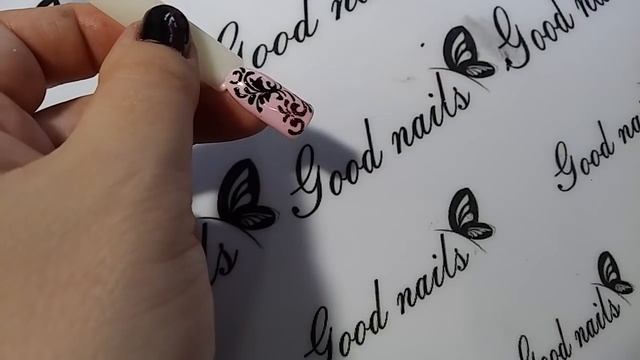 Good
Good na
Good nails
Good na
ls
Good nails
Good nails